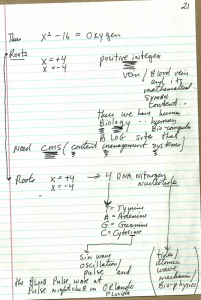 21
Then x² - 16 = Oxygen
Roots
x = +4 positive integer
x = -4 vein / Blood vein
and its
mathematical
symbol
content..
Then we have human
Biology .. human
Bio-computer
BLOG site that
Need CMS (content management systems)
Roots x = +4 4 DNA Nitrogen
x = -4 Nucleotide
T = Tymine
A = Adenine
G = Guanine
C = Cytosine
Sin wave
oscillation/
pulse and
the Blood Pulse went at
Pulse nightclub in ORLando
Florida
tides
atomic
wave
mechanics/
Bio-physics